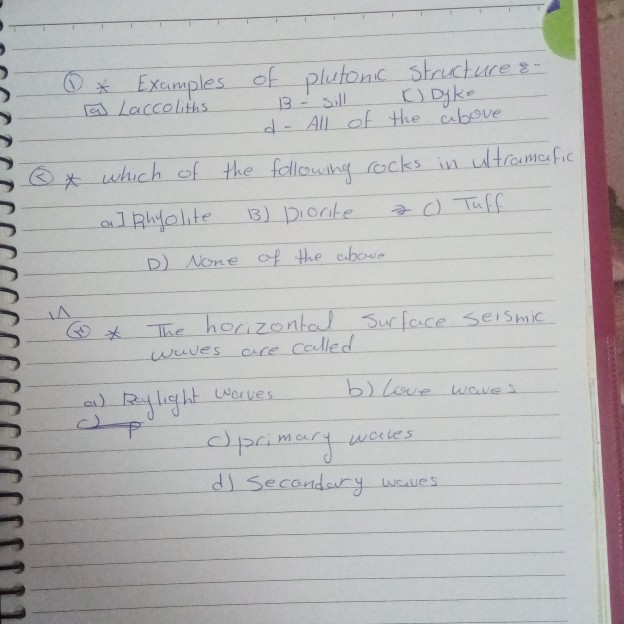 ① * Examples of plutonic structure :-
a) Laccoliths B - Sill C) Dyke
d - All of the above
② * which of the following rocks in ultramafic
a) Rhyolite B) Diorite C) Tuff
D) None of the above
* The horizontal surface seismic
waves are called
a) Reylight waves b) Love waves
c) P
c) primary waves
d) Secondary waves